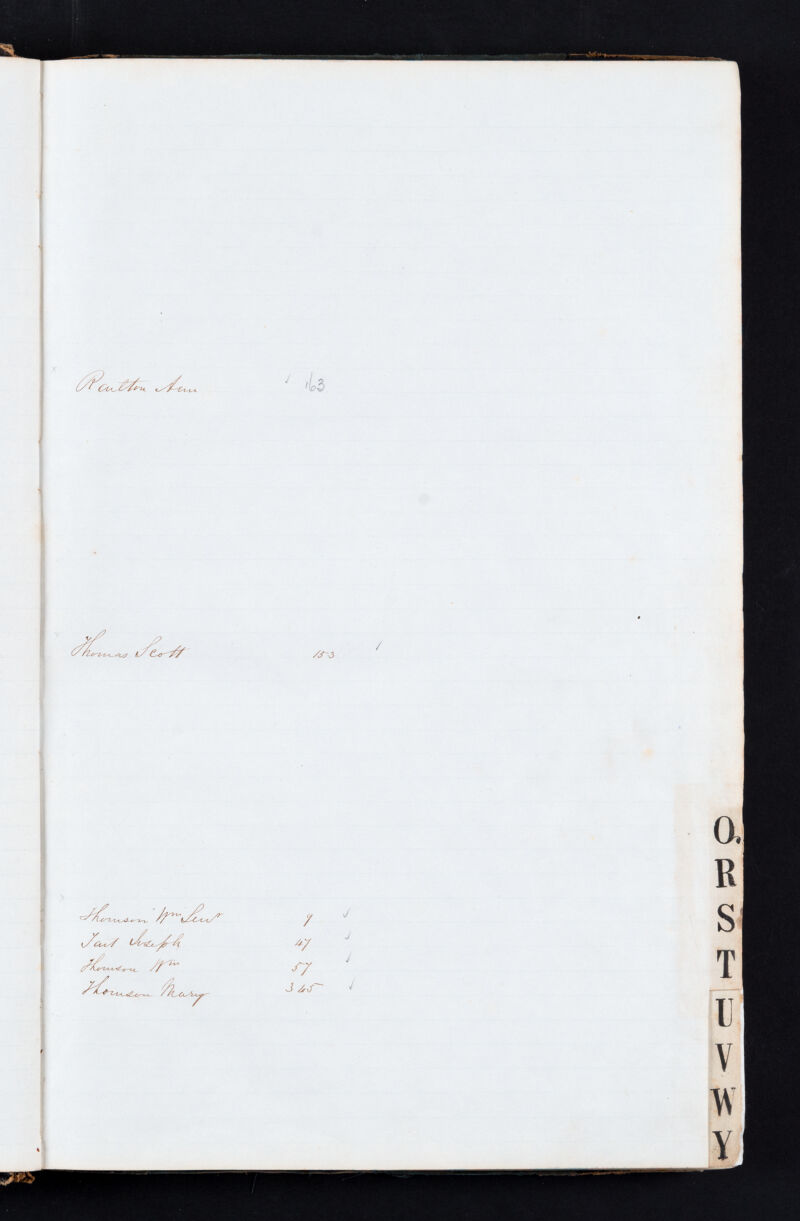 Railton Ann 163
Thomas Scott 153
Thomson Wm Senr 9
Tait Joseph 47
Thomson Wm 57
Thomson Mary 345
O.
R
S
T
U
V
W
Y